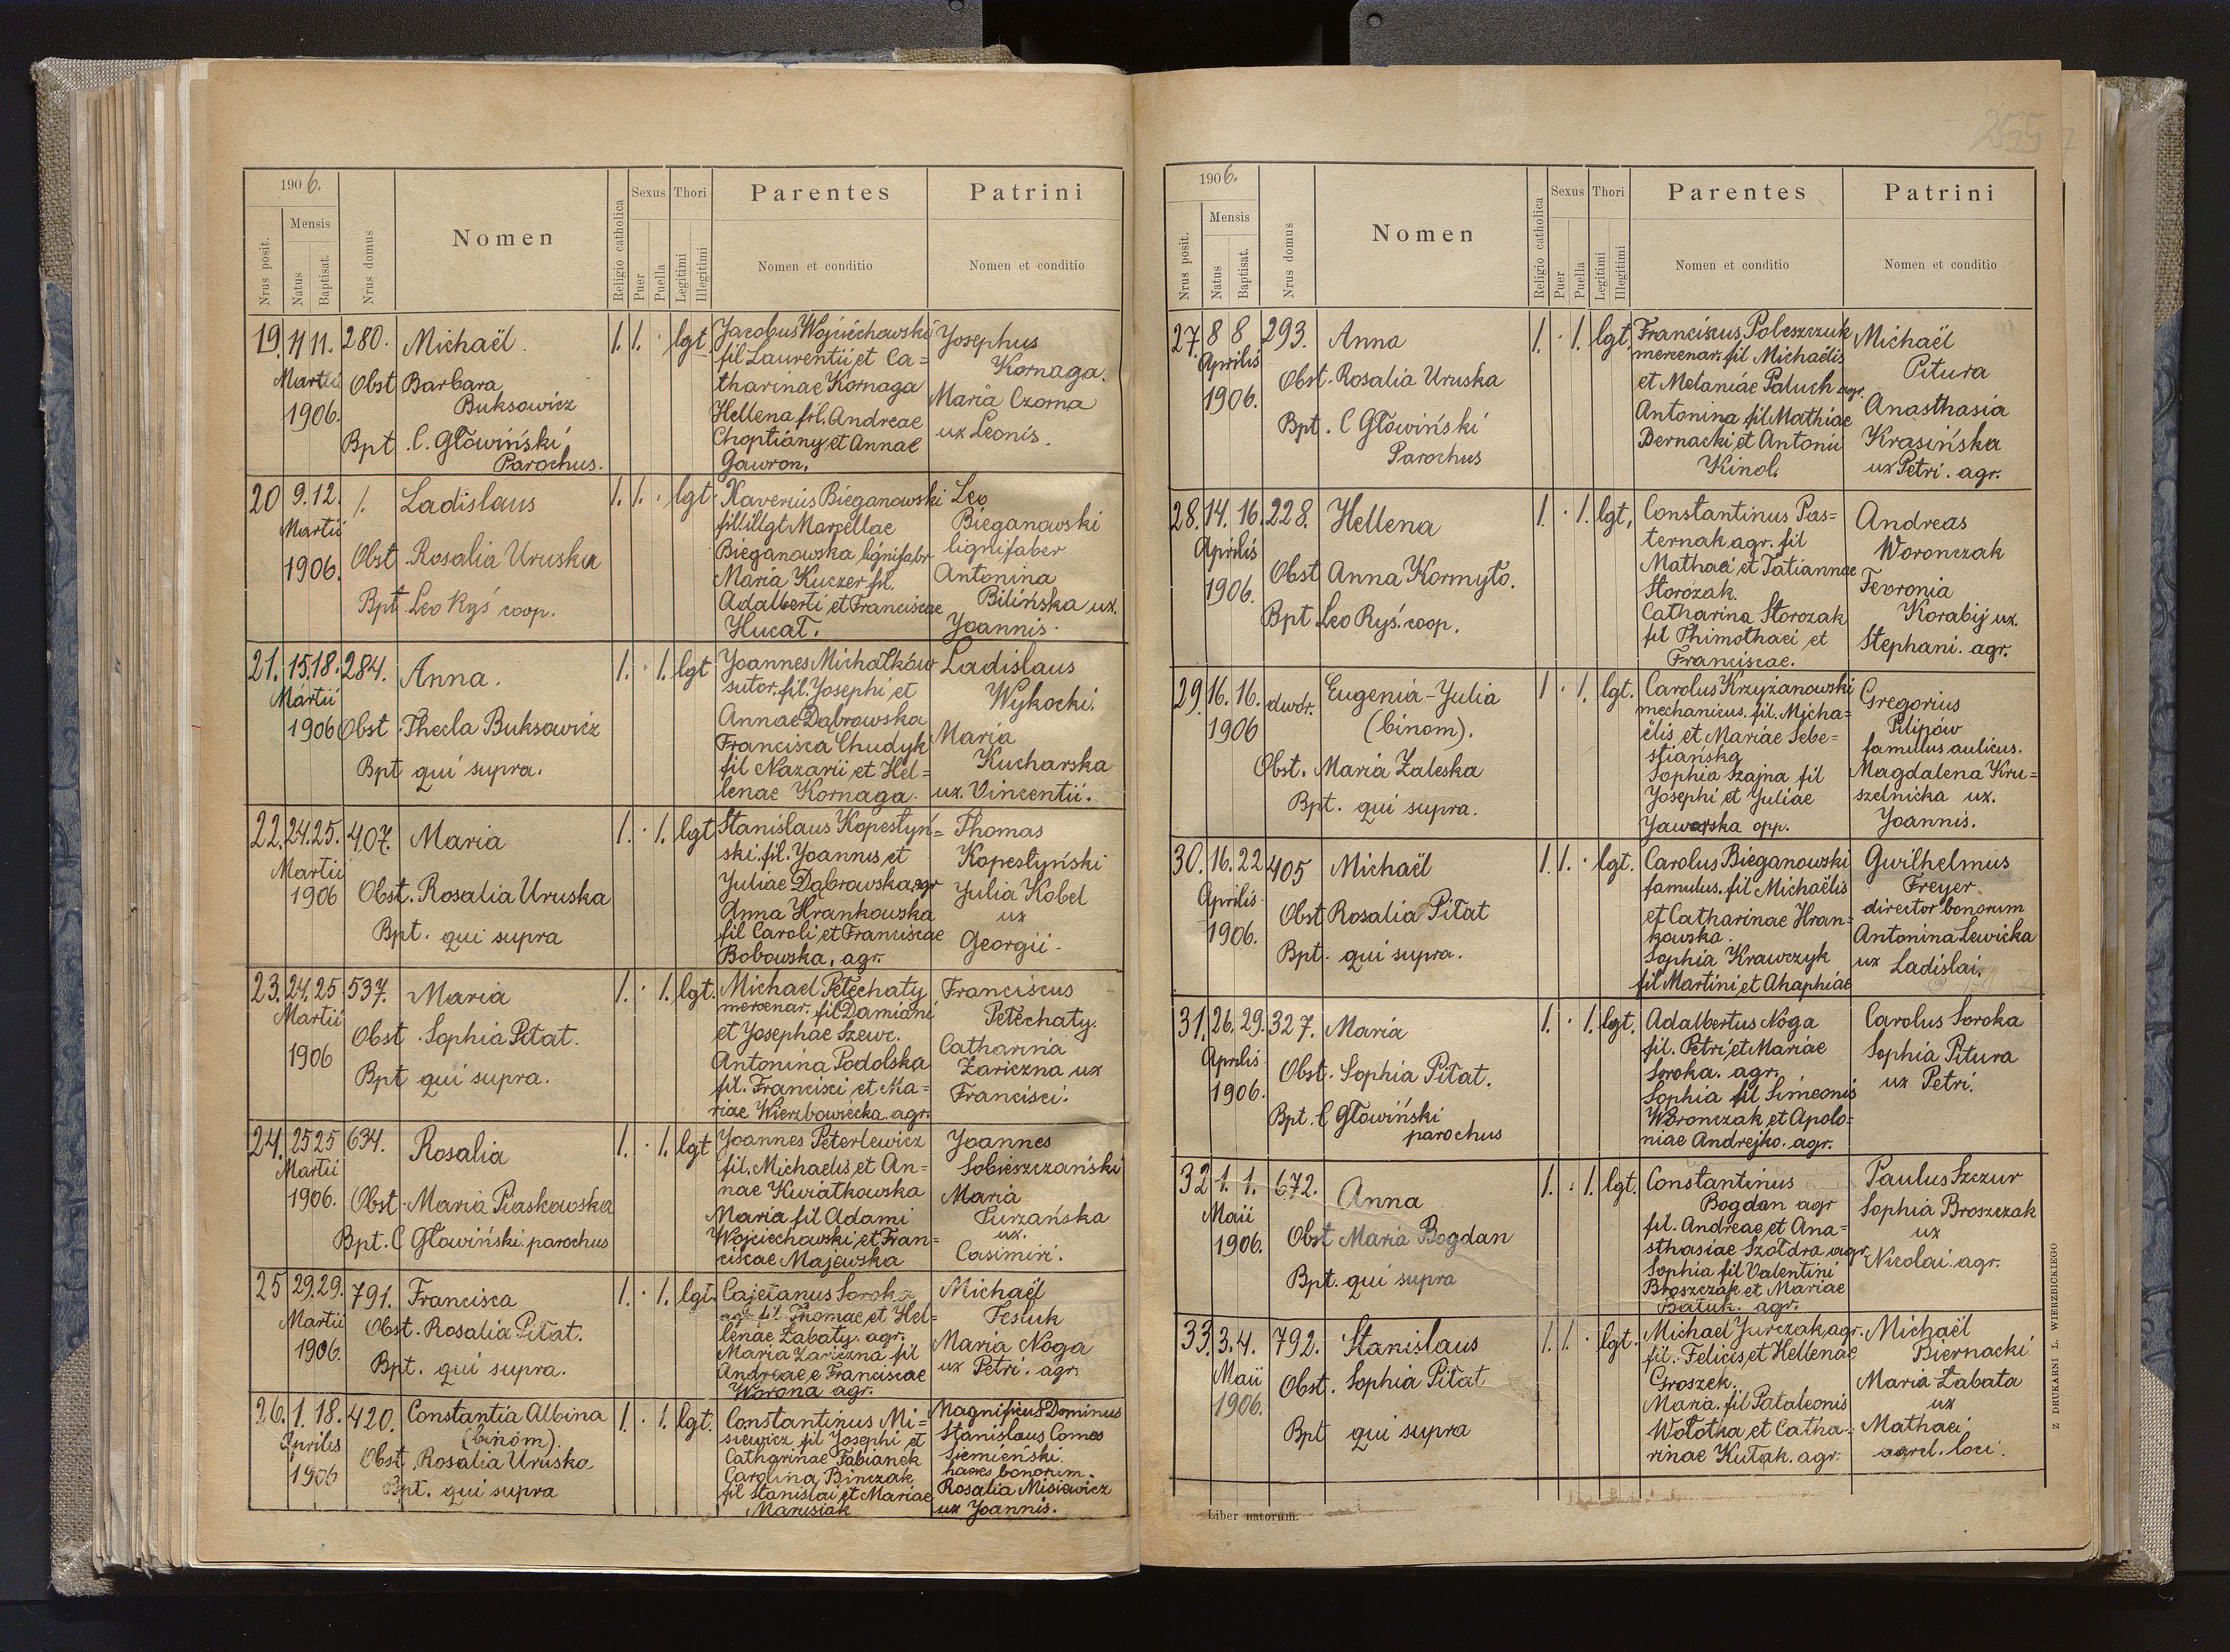 1906.
Nrus posit.
Mensis
Natus
Baptisat.
Nrus domus
Nomen
Religio catholica
Sexus
Puer
Puella
Thori
Legitimi
Illegitimi
Parentes
Nomen et conditio
Patrini
Nomen et conditio
19. 11 11. 280. Michaël. 1. 1. · lgt
Martii
1906.
Obst Barbara
Buksowicz
Bpt. C. Głowiński
Parochus.
Jacobus Wojciechowski
fil Laurentii et Ca=
tharinae Kornaga
Hellena fil. Andreae
Choptiany et Annae
Gawron.
Josephus
Kornaga.
Maria Czorna
ux Leonis.
20 9. 12. 1. Ladislaus 1. 1. · lgt
Martii
1906.
Obst Rosalia Uruska
Bpt Leo Ryś coop.
Xaverius Bieganowski
fil. illgt Marcellae
Bieganowska lignifabr
Maria Kuczer fil.
Adalberti et Franciscae
Hucał.
Leo
Bieganowski
lignifaber
Antonina
Bilińska ux.
Joannis.
21. 15. 18. 284. Anna. 1. · 1. lgt
Martii
1906
Obst Thecla Buksowicz
Bpt qui supra.
Joannes Michałków
sutor. fil. Josephi et
Annae Dąbrowska
Francisca Chudyk
fil Nazarii et Hel=
lenae Kornaga.
Ladislaus
Wykocki.
Maria
Kucharska
ux. Vincentii.
22. 24. 25. 407. Maria 1. · 1. lgt
Martii
1906
Obst. Rosalia Uruska
Bpt. qui supra
Stanislaus Kopestyń=
ski. fil. Joannis et
Juliae Dąbrowska agr
Anna Hrankowska
fil Caroli et Franciscae
Bobowska, agr.
Thomas
Kopestyński
Julia Kobel
ux
Georgii.
23. 24. 25 537. Maria 1. · 1. lgt.
Martii
1906
Obst Sophia Pitat.
Bpt qui supra.
Michael Petechaty
mercenar. fil Damiani
et Josephae Szewc.
Antonina Podolska
fil. Francisci et Ma=
riae Wierzbowiecka. agr.
Franciscus
Petechaty.
Catharina
Zariczna ux
Francisci.
24. 25 25 634. Rosalia 1. · 1. lgt
Martii
1906.
Obst Maria Piaskowska
Bpt. C Głowiński parochus
Joannes Peterlewicz
fil. Michaelis et An=
nae Kwiatkowska
Maria fil Adami
Wojciechowski et Fran=
ciscae Majewska
Joannes
Sobieszczański
Maria
Turzańska
ux.
Casimiri.
25 29. 29. 791. Francisca 1. · 1. lgt.
Martii
1906.
Obst. Rosalia Pitat.
Bpt. qui supra.
Cajetanus Soroka
agr fil Thomae et Hel=
lenae Zabaty. agr.
Maria Zariczna fil
Andreae e Franciscae
Worona agr.
Michaël
Tesluk
Maria Noga
ux Petri. agr.
26. 1. 18. 420. Constantia Albina 1. · 1. lgt.
Aprilis
1906
(binom).
Obst. Rosalia Uruska
Bpt. qui supra
Constantinus Mi=
siewicz fil Josephi et
Catharinae Fabianek
Carolina Binczak
fil Stanislai et Mariae
Marusiak
Magnificus Dominus
Stanislaus Comes
Siemieński.
haeres bonorum.
Rosalia Misiewicz
ux Joannis.
1906.
Nrus posit.
Mensis
Natus
Baptisat.
Nrus domus
Nomen
Religio catholica
Sexus
Puer
Puella
Thori
Legitimi
Illegitimi
Parentes
Nomen et conditio
Patrini
Nomen et conditio
27. 8 8 293. Anna 1. · 1. lgt.
Aprilis
1906.
Obst. Rosalia Uruska
Bpt. C Głowiński
Parochus
Franciscus Poleszczuk
mercenar. fil Michaëlis
et Melaniae Paluch agr.
Antonina fil Mathiae
Bernacki et Antonii
Kinol.
Michaël
Pitura
Anasthasia
Krasińska
ux Petri. agr.
28. 14. 16. 228. Hellena 1. · 1. lgt.
Aprilis
1906.
Obst Anna Kormyło.
Bpt Leo Ryś. coop.
Constantinus Pas=
ternak agr. fil
Mathaei et Tatiannae
Storozak.
Catharina Storozak
fil Thimothaei et
Franciscae.
Andreas
Woronczak
Fevronia
Korabij ux.
Stephani. agr.
29. 16. 16. dwór. Eugenia-Julia 1 · 1. lgt.
1906
(binom).
Obst. Maria Zaleska
Bpt. qui supra.
Carolus Krzyżanowski
mechanicus. fil. Micha=
ëlis et Mariae Sebe=
stiańska
Sophia Szajna fil
Josephi et Juliae
Jaworska opp.
Gregorius
Pilipów
famulus aulicus.
Magdalena Kru=
szelnicka ux.
Joannis.
30. 16. 22 405 Michaël 1. 1. · lgt.
Aprilis
1906.
Obst Rosalia Pitat
Bpt. qui supra.
Carolus Bieganowski
famulus. fil Michaëlis
et Catharinae Hran=
kowska.
Sophia Krawczyk
fil Martini et Ahaphiae
Gwilhelmus
Freyer
director bonorum
Antonina Lewicka
ux Ladislai.
31. 26. 29. 327. Maria 1. · 1. lgt.
Aprilis
1906.
Obst. Sophia Pitat.
Bpt. C Głowiński
parochus
Adalbertus Noga
fil. Petri et Mariae
Soroka. agr.
Sophia fil Simeonis
Woronczak et Apolo=
niae Andrejko. agr.
Carolus Soroka
Sophia Pitura
ux Petri.
32 1. 1. 672. Anna 1. · 1. lgt.
Maii
1906.
Obst Maria Bogdan
Bpt. qui supra
Constantinus
Bogdan agr
fil. Andreae et Ana=
sthasiae Szołdra agr
Sophia fil Valentini
Broszczak et Mariae
Batuk. agr.
Paulus Szczur
Sophia Broszczak
ux
Nicolai. agr.
33. 3. 4. 792. Stanislaus 1. 1. · lgt.
Maii
1906.
Obst. Sophia Pitat
Bpt qui supra
Michael Jurczak agr.
fil. Felicis et Hellenae
Groszek.
Maria. fil Pataleonis
Wołotka et Catha=
rinae Kutak. agr.
Michaël
Biernacki
Maria Zabata
ux
Mathaei
agrel. loci.
Liber natorum.
Z DRUKARNI L. WIERZBICKIEGO